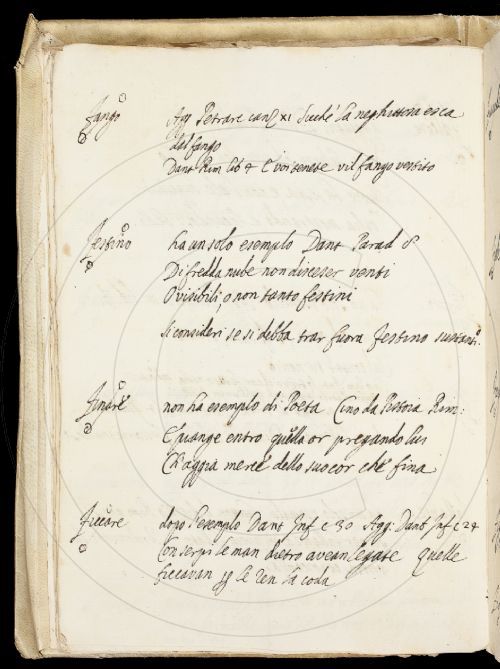 Fango Agg Petrarc canz XI Sicché la neghittosa esca
dal fango
Dant Rim lib 4 E voi tenete vil fango vestito
Festino ha un solo esemplo Dant Parad 8
Di fredda nube non disceser venti
O visibili, o non tanto festini
Si consideri se si debba trar fuora Festino sustanti.
Finare non ha esemplo di Poeta Cino da Pistoia Rim:
E piange entro quell'a or pregando lui
Ch'aggia mercé dello suo cor che fina
Ficcare dopo l'esemplo Dant Inf c 30 Agg: Dant Inf c 24
Con serpi le man dietro avean legate quelle
ficcavan p le ren la coda